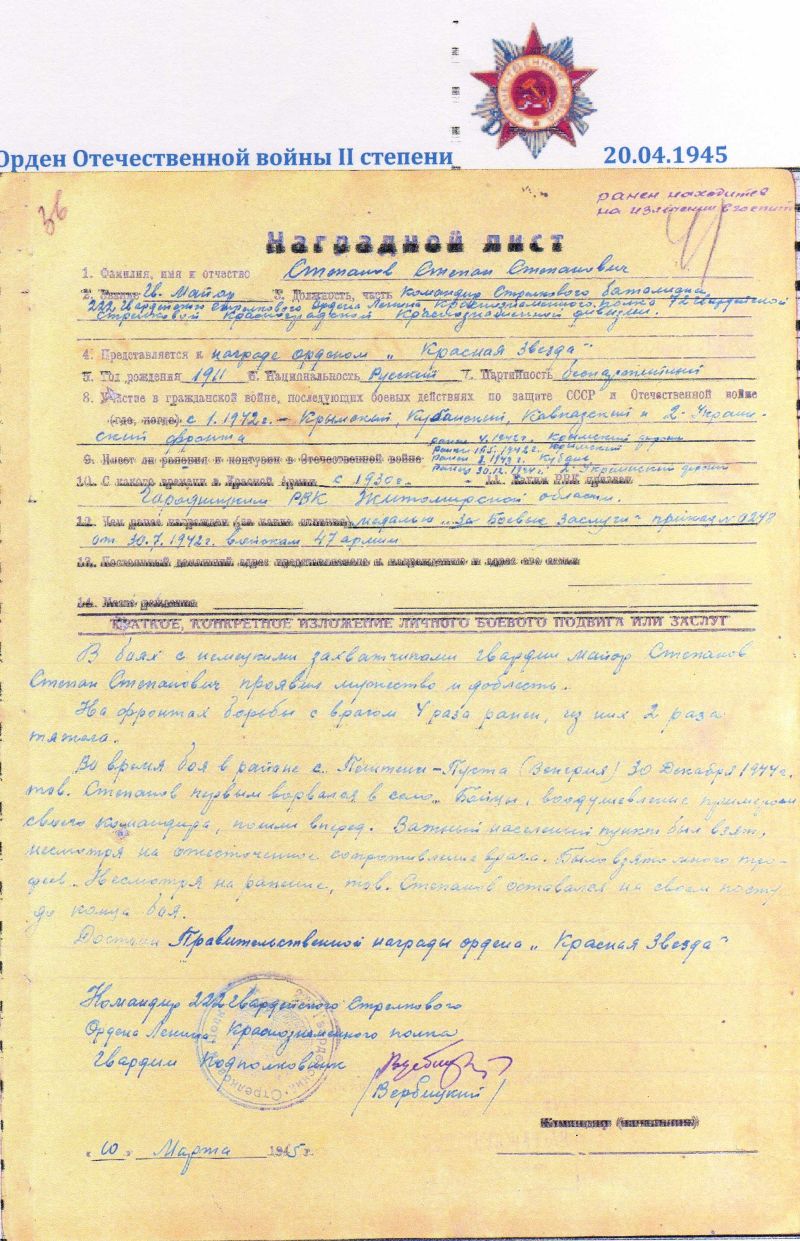 Орден Отечественной войны II степени 20.04.1945
36 ранен находится
на излечении в госпит
Наградной лист
1. Фамилия, имя и отчество Степанов Степан Степанович
2. Звание Гв. Майор 3. Должность, часть Командир Стрелкового батальона
222 Гвардейского Стрелкового Ордена Ленина Краснознаменного полка 72 Гвардейской
Стрелковой Красноградской Краснознаменной дивизии.
4. Представляется к награде орденом „Красная Звезда"
5. Год рождения 1911 6. Национальность Русский 7. Партийность беспартийный
8. Участие в гражданской войне, последующих боевых действиях по защите СССР и Отечественной войне
(где, когда) с 1.1942г. – Крымский, Кубанский, Кавказский и 2-Украин-
ский фронта
9. Имеет ли ранения и контузии в Отечественной войне ранен 30.12.44г. 2-Украинский фронт
10. С какого времени в Красной Армии с 1930г. 11. Каким РВК призван
Городницким РВК Житомирской области.
12. Чем ранее награжден (за какие отличия) медалью „За Боевые Заслуги" приказ N 0248
от 30.7.1942г. войскам 47 армии
13. Постоянный домашний адрес представляемого к награждению и адрес его семьи
14. Место рождения
КРАТКОЕ, КОНКРЕТНОЕ ИЗЛОЖЕНИЕ ЛИЧНОГО БОЕВОГО ПОДВИГА ИЛИ ЗАСЛУГ
В боях с немецкими захватчиками гвардии майор Степанов
Степан Степанович проявил мужество и доблесть.
На фронтах борьбы с врагом 4 раза ранен, из них 2 раза
тяжело.
Во время боя в районе с. Пуста (Венгрия) 30 Декабря 1944г.
тов. Степанов первым ворвался в село. Бойцы, воодушевленные примером
своего командира, пошли вперед. Важный населенный пункт был взят,
несмотря на ожесточенное сопротивление врага. Было взято много тро-
феев. Несмотря на ранение, тов. Степанов оставался на своем посту
до конца боя.
Достоин Правительственной награды ордена „Красная Звезда"
Командир 222 Гвардейского Стрелкового
Ордена Ленина Краснознаменного полка
Гвардии Подполковник
/Вербицкий/
Командир (начальник)
„10" Марта 1945г.